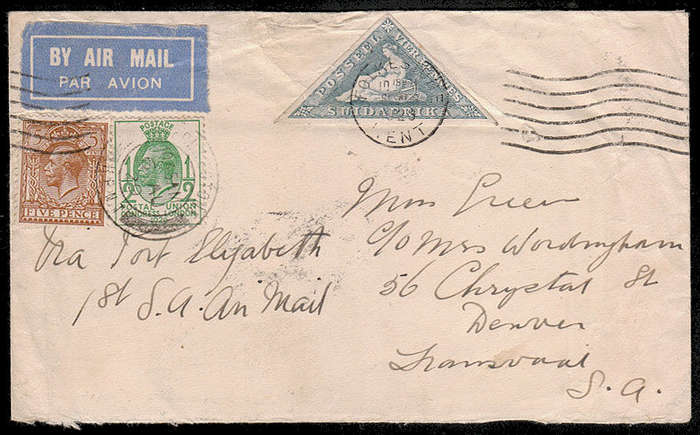 BY AIR MAIL
PAR AVION
POSSEËL VIER PENNIES
SUIDAFRIKA
KENT
FIVE PENCE
POSTAGE
1 2
POSTAL UNION
CONGRESS LONDON
Via Port Elizabeth
1st S.A. Air Mail
Miss Green
C/O Mrs Wordingham
56 Chrystal St
Denver
Transvaal
S.A.